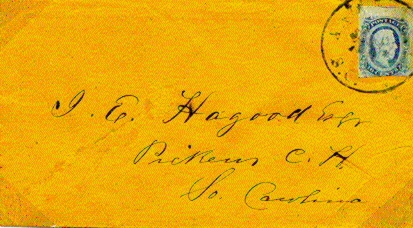 J. E. Hagood Esqr
Pickens C. H.
So. Carolina